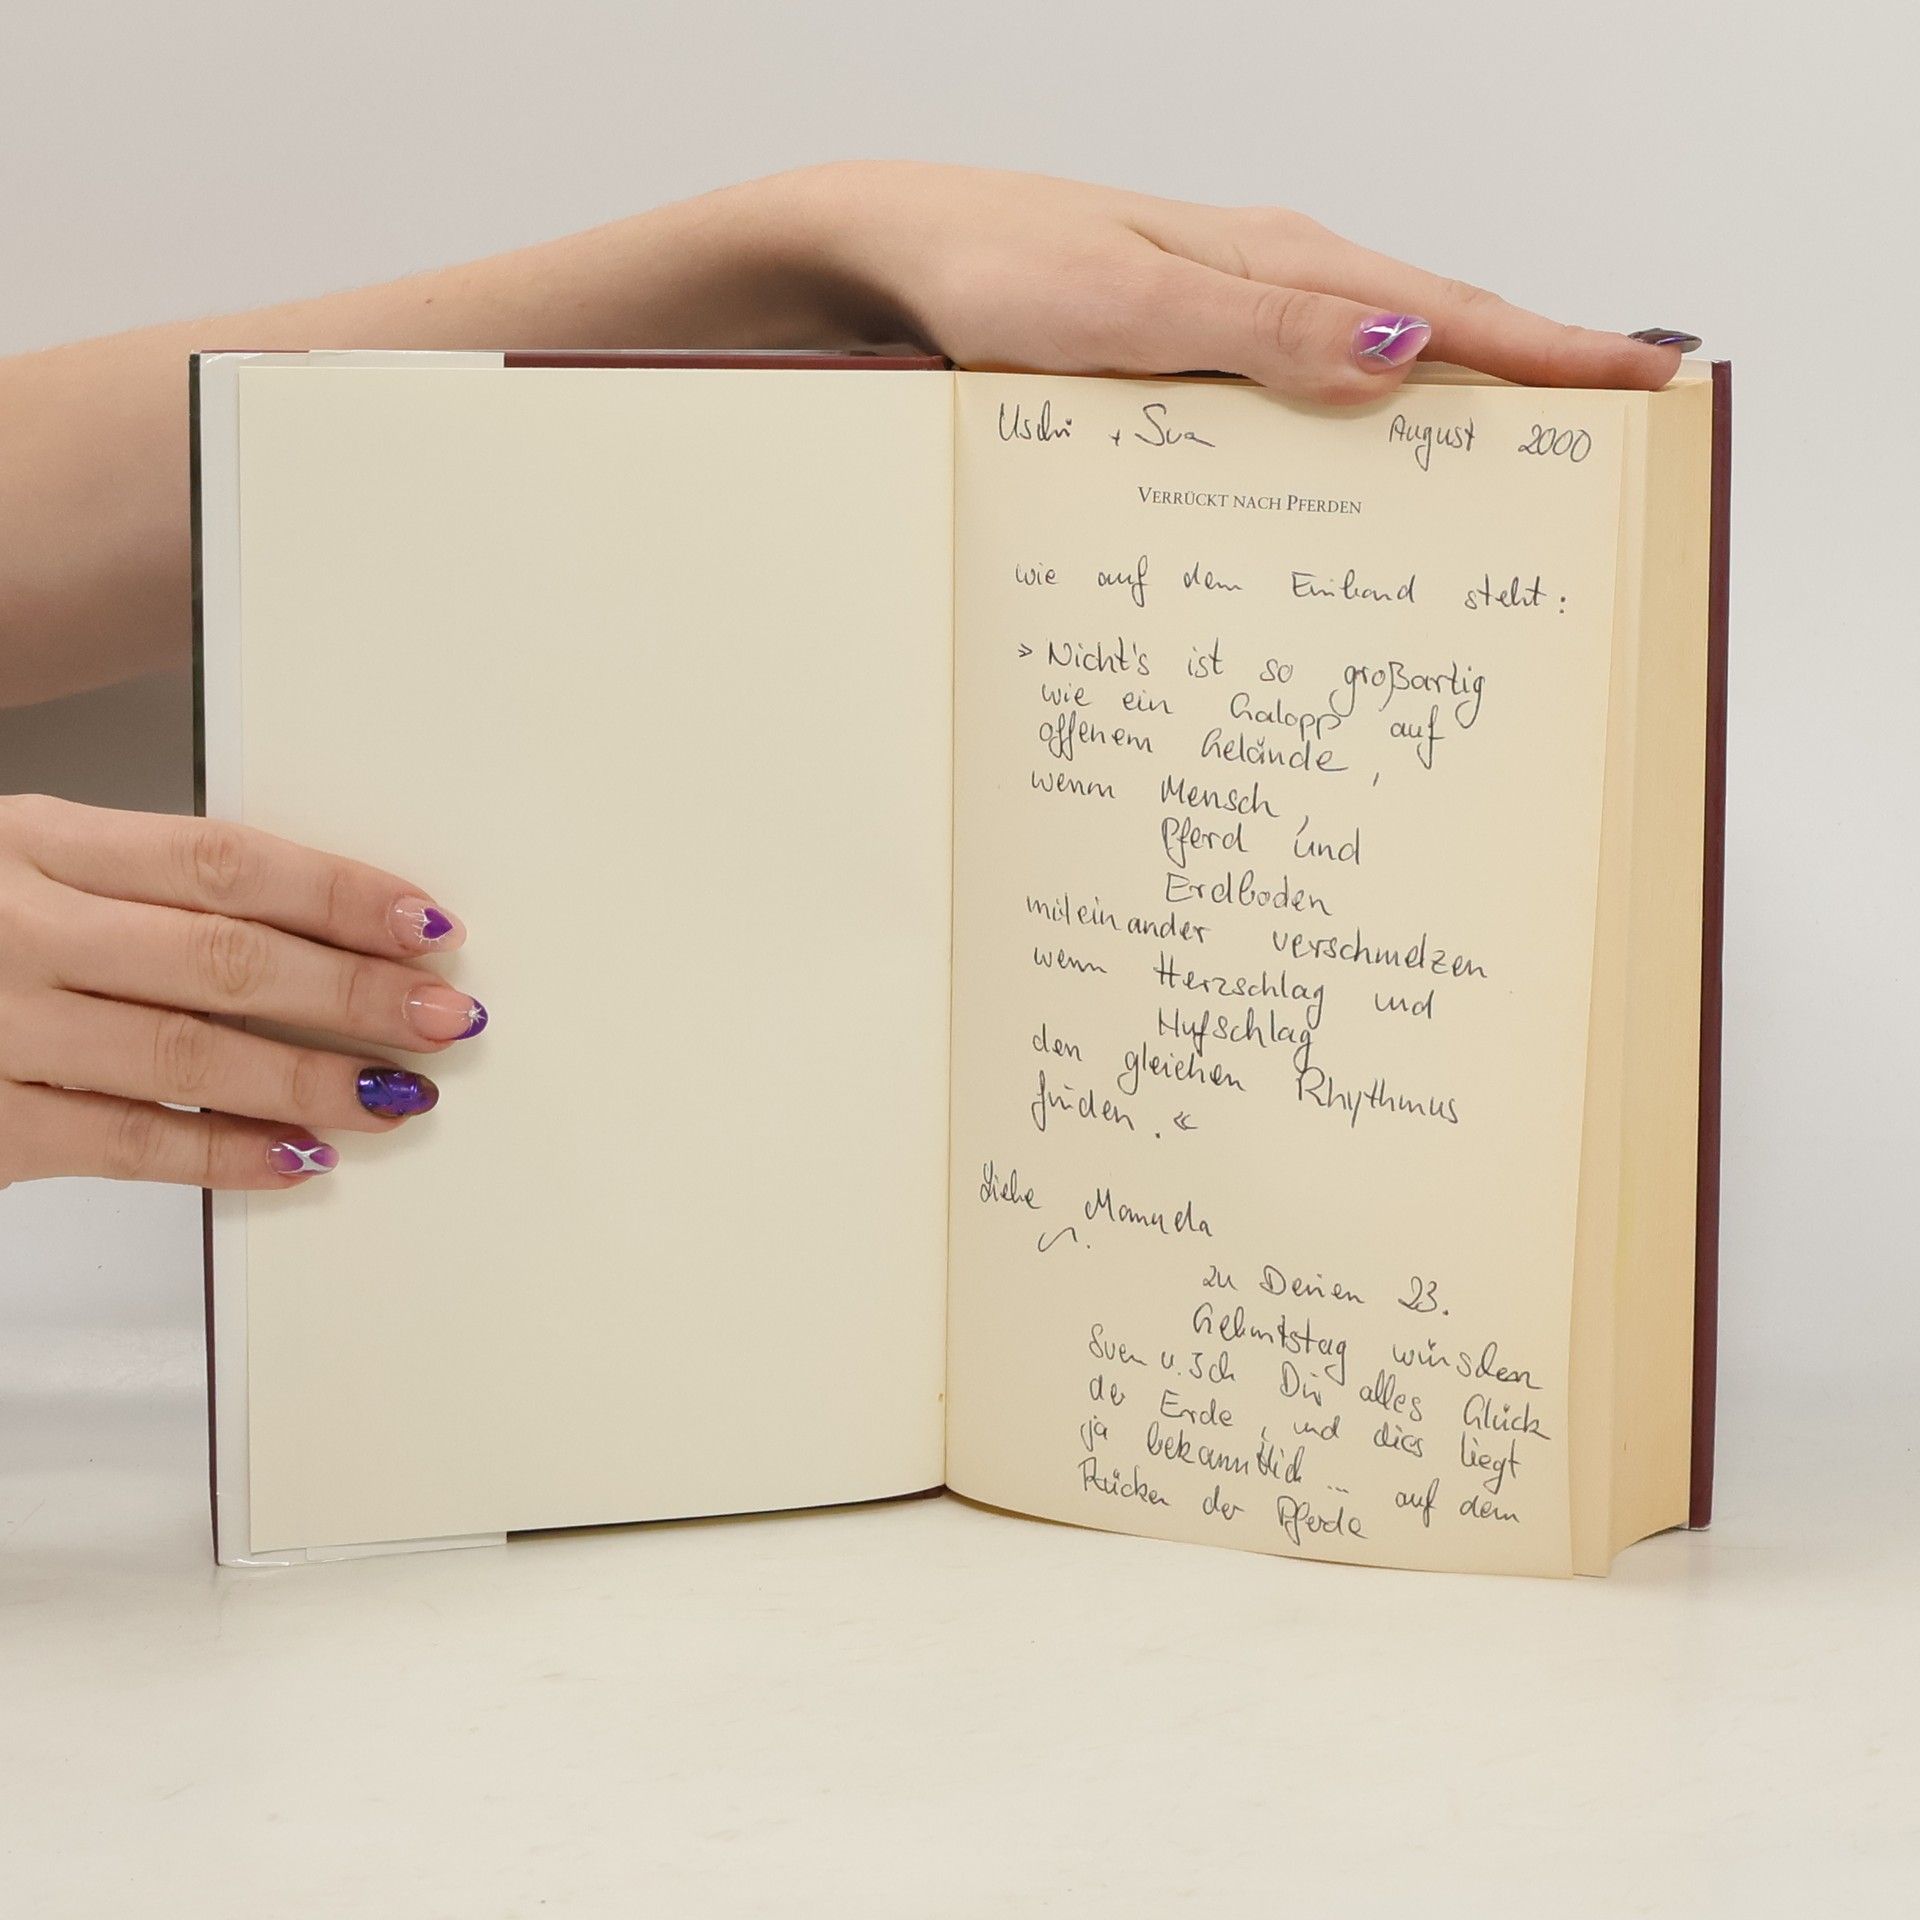 Uschi + Sven August 2000
VERRÜCKT NACH PFERDEN
wie auf dem Einband steht:
» Nicht's ist so großartig
wie ein Galopp auf
offenem Gelände,
wenn Mensch,
Pferd und
Erdboden
miteinander verschmelzen
wenn Herzschlag und
Hufschlag
den gleichen Rhythmus
finden. «
Liebe Manuela
zu Deinen 23.
Geburtstag wünschen
Sven u. Ich Dir alles Glück
der Erde, und dies liegt
ja bekanntlich ... auf dem
Rücken der Pferde